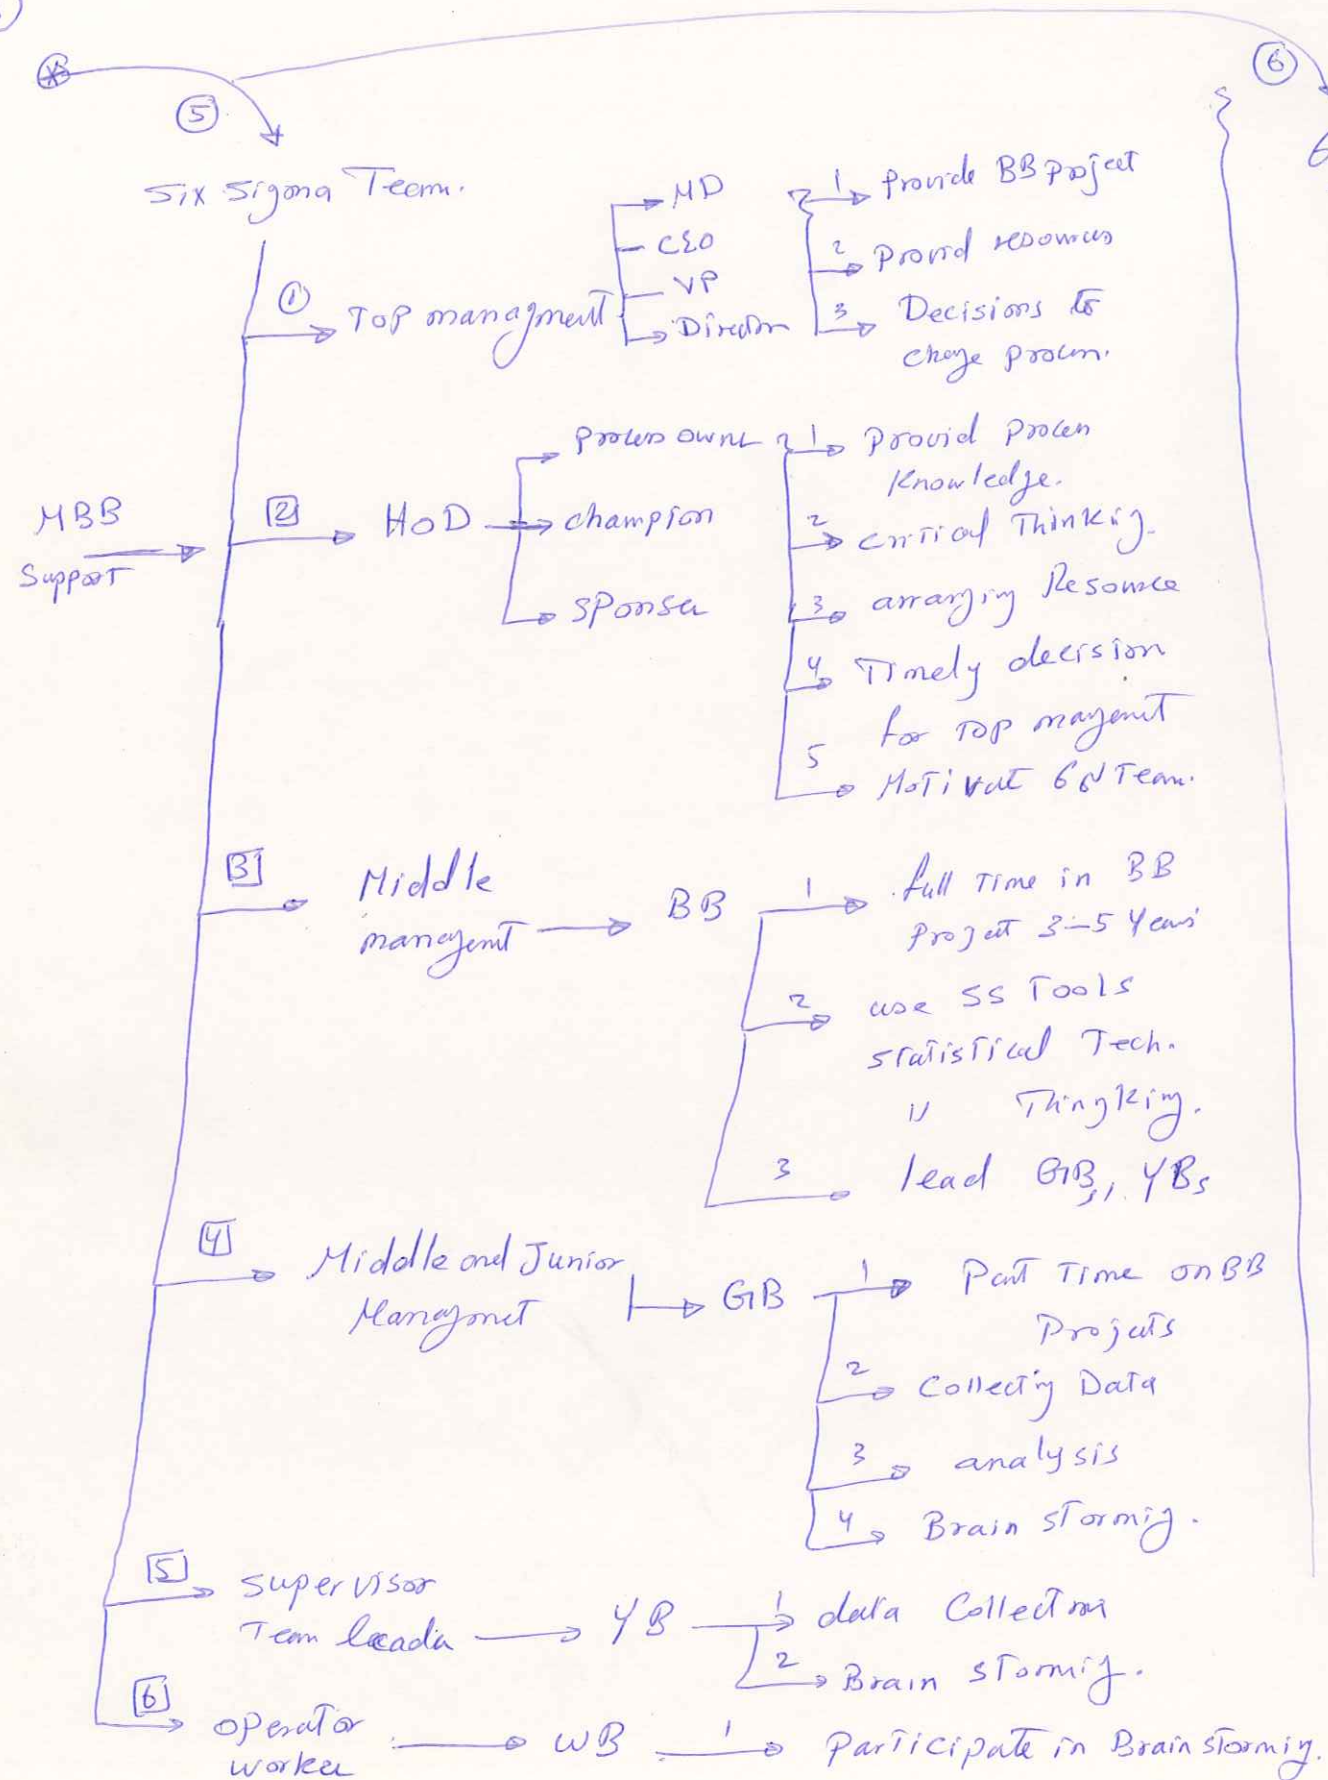 ⑤
⑥
Six Sigma Team.
① Top managment
MD
CEO
VP
Director
1 Provide BB project
2 Provid resources
3 Decisions to
change process.
MBB
Support
2 HoD
process owner
champion
sponser
1 Provid process
Knowledge.
2 critical Thinking.
3 arranging Resource
4 Timely decision
for Top managemt
5 Motivat 6σ Team.
3 Middle
managemt
BB
1 full Time in BB
Project 3-5 Years
2 use SS Tools
statistical Tech.
11 Thingking.
3 lead GBs, YBs
4 Middle and Junior
Managmet
GB
1 Part Time on BB
Projects
2 Collecting Data
3 analysis
4 Brain storming.
5 supervisor
Team leader
YB
1 data Collection
2 Brain storming.
6 operator
worker
WB
1 Participate in Brain storming.